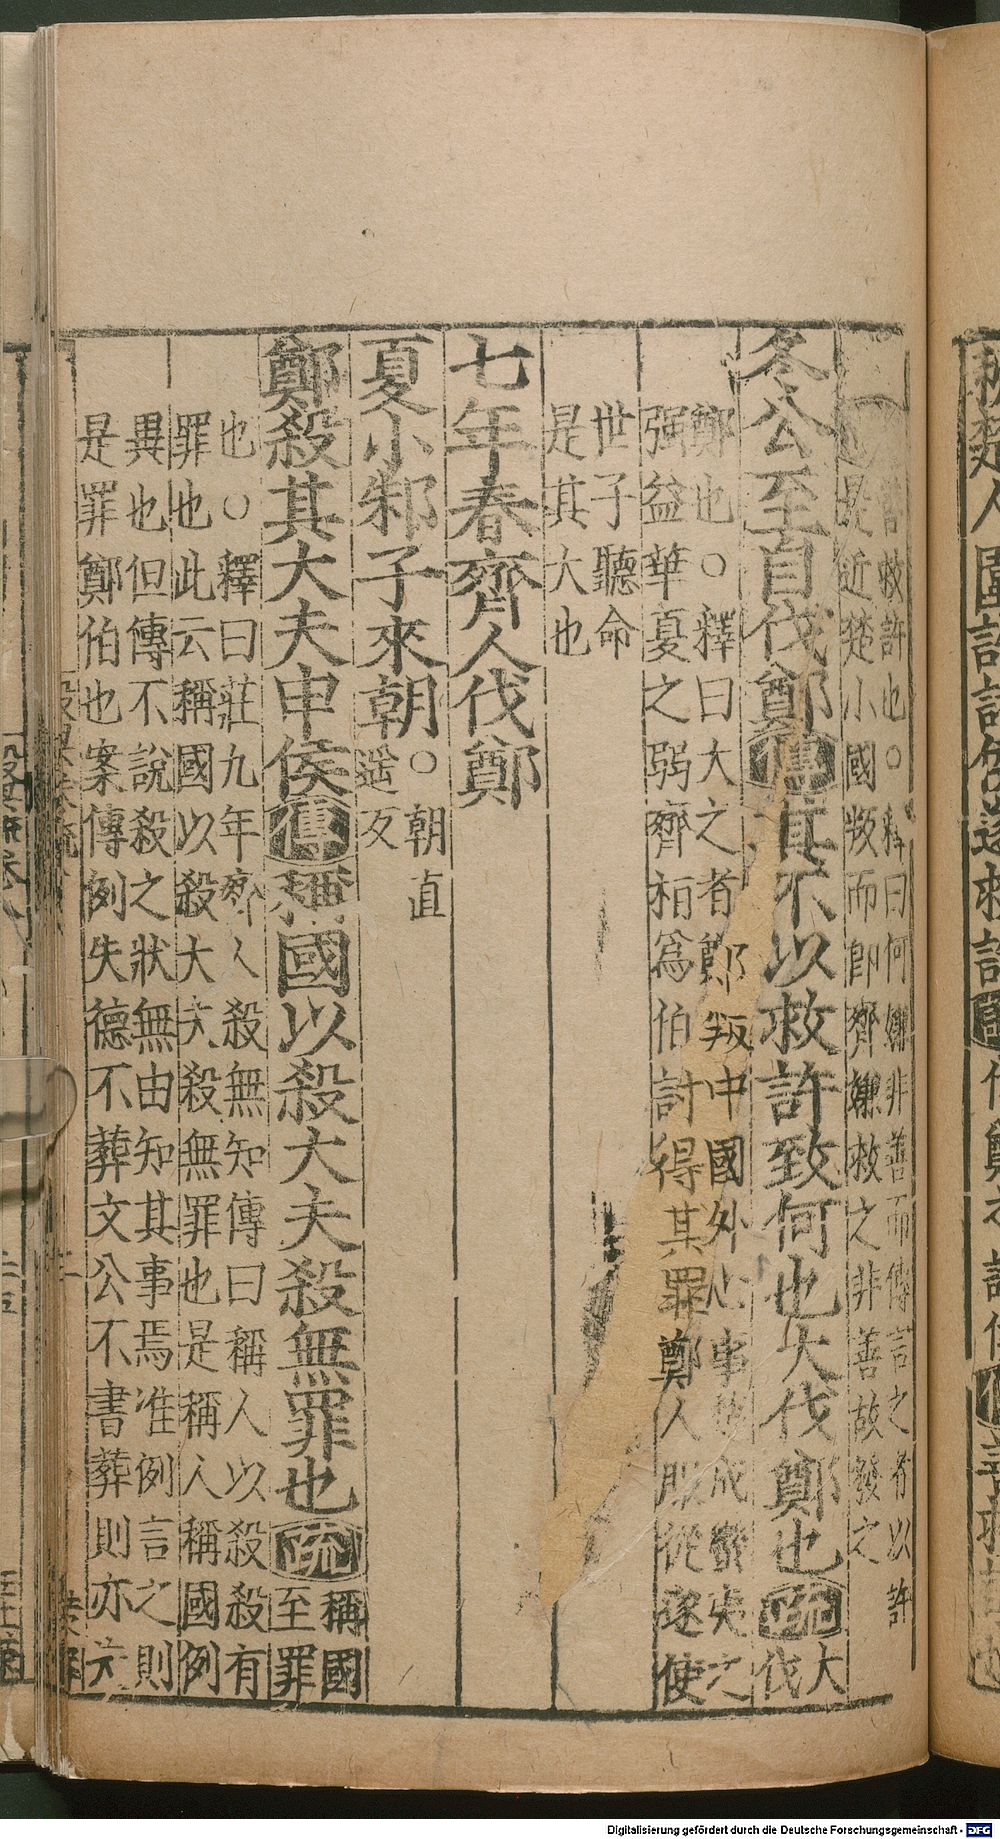 善救許也○釋曰何嫌非善而傳言之者以許
是近楚小國叛而即齊嫌救之非善故發之
冬公至自伐鄭傳其不以救許致何也大伐鄭也疏大伐
鄭也○釋曰大之者鄭叛中國外心事楚成蠻夷之
强益華夏之弱齊桓爲伯討得其罪鄭人服從遂使
世子聽命
是其大也
七年春齊人伐鄭
夏小邾子來朝○朝直
遥反
鄭殺其大夫申侯傳稱國以殺大夫殺無罪也疏稱國至罪
也○釋曰莊九年齊人殺無知傳曰稱人以殺殺有
罪也此云稱國以殺大夫殺無罪也是稱人稱國例
異也但傳不說殺之狀無由知其事焉准例言之則
是罪鄭伯也案傳例失德不葬文公不書葬則亦
Digitalisierung gefördert durch die Deutsche Forschungsgemeinschaft - DFG